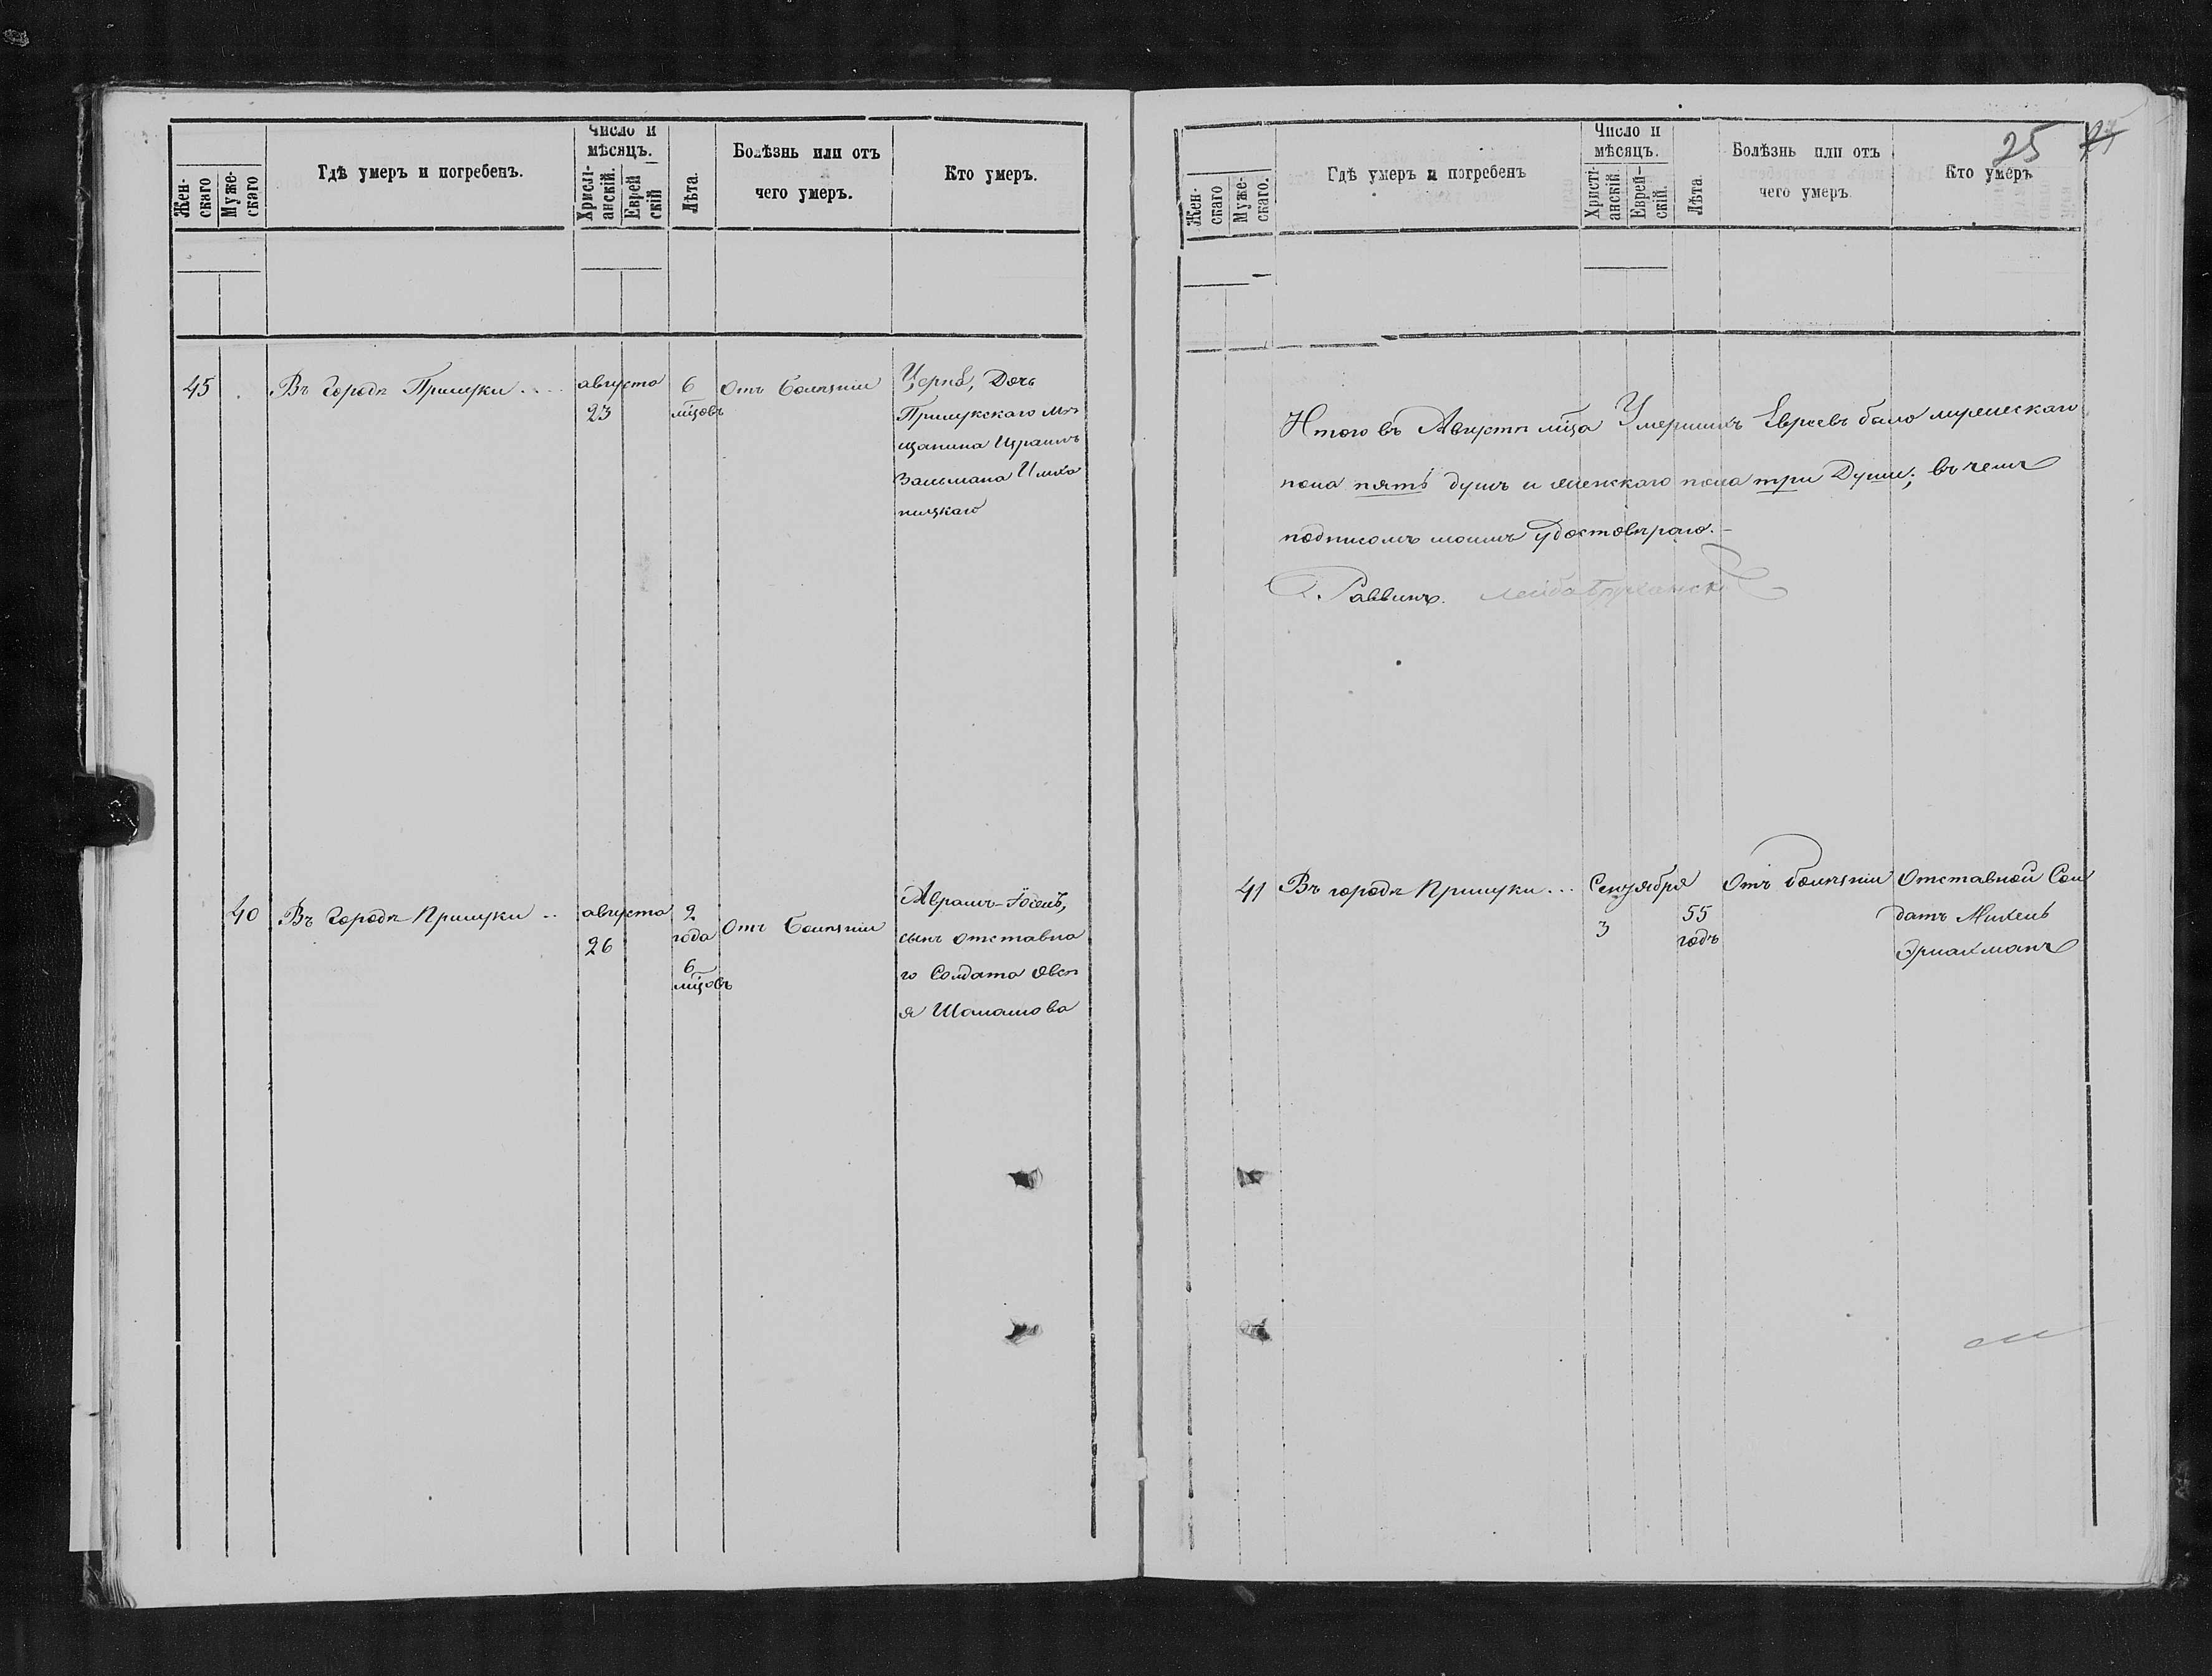 Жен-
скаго
Муже-
скаго
Гдѣ умеръ и погребенъ.
Число и
мѣсяцъ.
Христі-
анскій.
Еврей
скій
Лѣта.
Болѣзнь или отъ
чего умеръ.
Кто умеръ.
45
Въ Городѣ Прилуки....
августа
23
6
мцовъ
Отъ болѣзни
Церна, Дочь
Прилукскаго мѣ
щанина Израиль
Залмана
40
Въ Городѣ Прилуки ..
августа
26
2
года
6
мцовъ
Отъ болѣзни
Аврамъ-Іосепъ,
сынъ отставна
го Солдата Овсѣ
я Шамашова
25
Жен-
скаго
Муже-
скаго.
Гдѣ умеръ и погребенъ
Число и
мѣсяцъ.
Христі-
анскій.
Еврей-
скій.
Лѣта.
Болѣзнь или отъ
чего умеръ.
Кто умеръ
Итого въ Августѣ мца Умершихъ Евреевъ было мужескаго
пола пять душъ и женскаго пола три Души; въ чемъ
подписомъ моимъ удостовѣряю.-
Раввинъ.
41
Въ городѣ Прилуки...
Сентября
3
55
годъ
Отъ болѣзни
Отставной Сол
датъ Михель